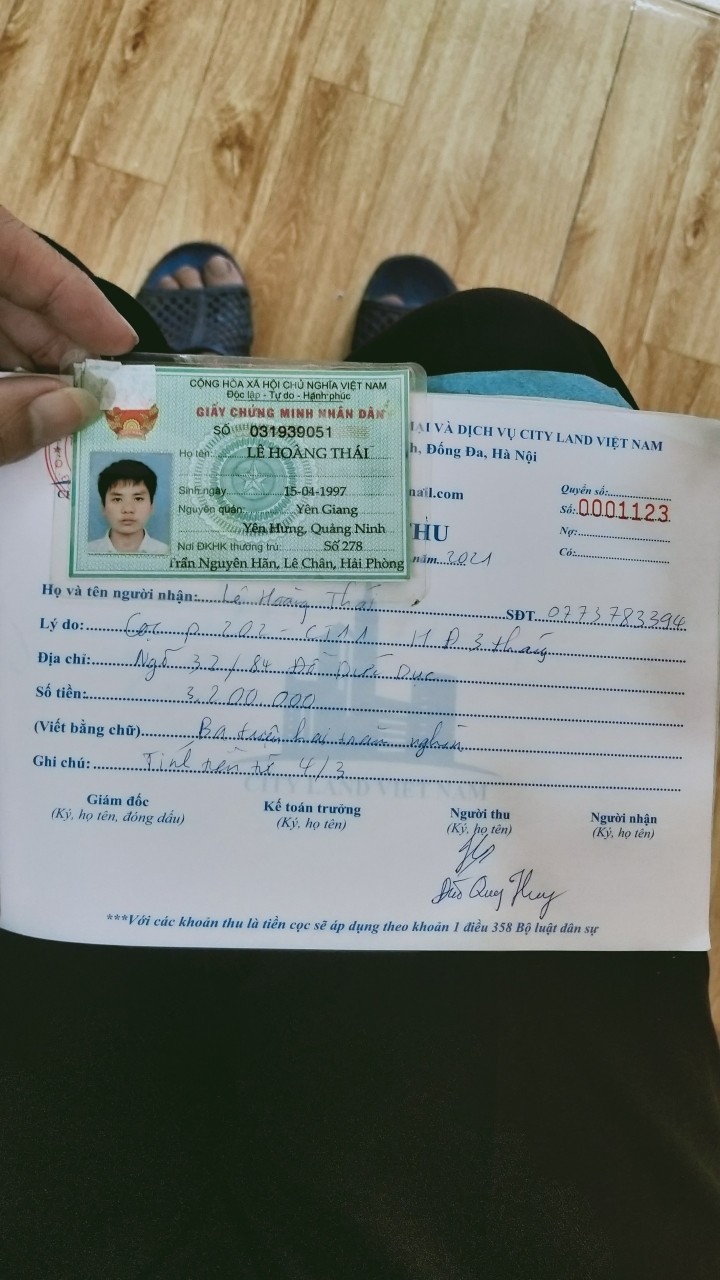 CỘNG HÒA XÃ HỘI CHỦ NGHĨA VIỆT NAM
Độc lập - Tự do - Hạnh phúc
GIẤY CHỨNG MINH NHÂN DÂN
SỐ 031939051
Họ tên: LÊ HOÀNG THÁI
Sinh ngày 15-04-1997
Nguyên quán: Yên Giang
Yên Hưng, Quảng Ninh
Nơi ĐKHK thường trú: Số 278
Trần Nguyên Hãn, Lê Chân, Hải Phòng
VÀ DỊCH VỤ CITY LAND VIỆT NAM
Đống Đa, Hà Nội
Quyển số:
Số: 0001123
Nợ:
Có:
THU
năm 2021
Họ và tên người nhận: Lê Hoàng Thái SĐT 0773783394
Lý do: Cọc p 202 - CT11 HĐ 3 tháng
Địa chỉ: Ngõ 32/84
Số tiền: 3.200.000
(Viết bằng chữ) Ba triệu hai trăm nghìn
Ghi chú: Tính tiền từ 4/3
CITY LAND VIỆT NAM
Giám đốc
(Ký, họ tên, đóng dấu)
Kế toán trưởng
(Ký, họ tên)
Người thu
(Ký, họ tên)
Người nhận
(Ký, họ tên)
***Với các khoản thu là tiền cọc sẽ áp dụng theo khoản 1 điều 358 Bộ luật dân sự